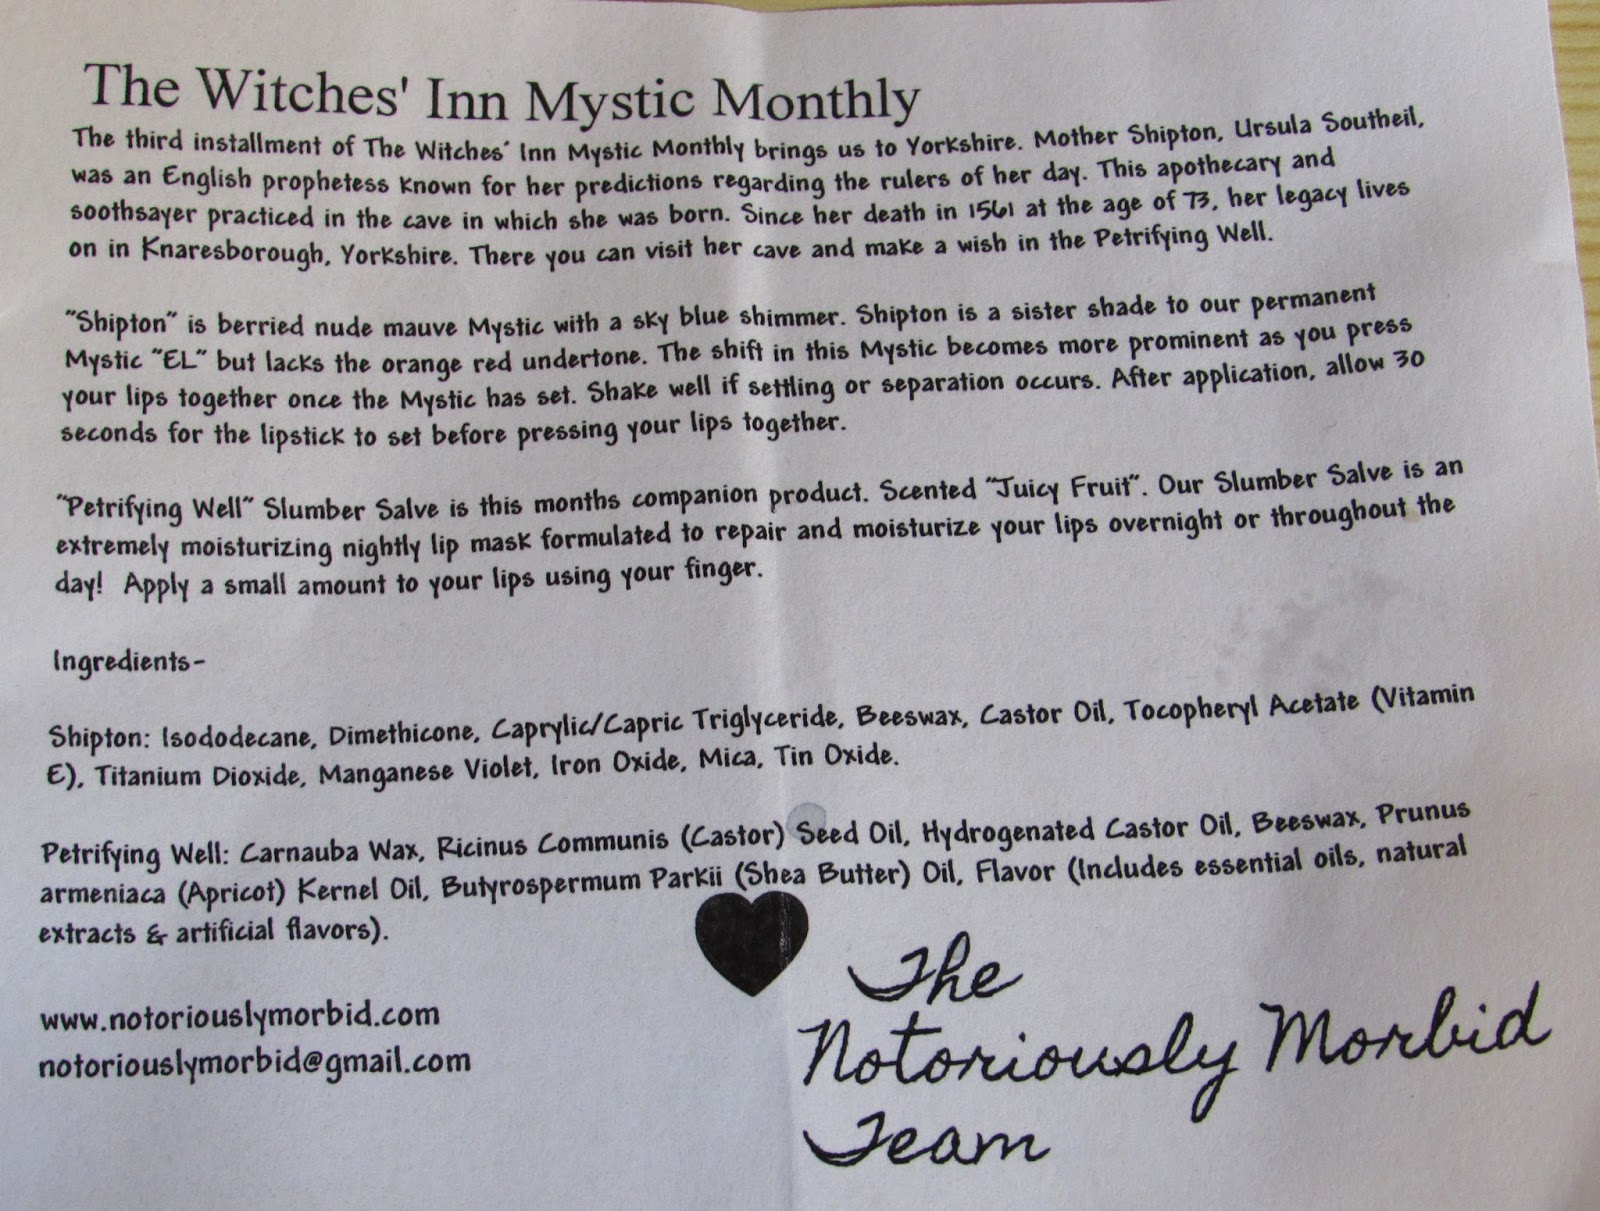 The Witches' Inn Mystic Monthly
The third installment of The Witches' Inn Mystic Monthly brings us to Yorkshire. Mother Shipton, Ursula Southeil,
was an English prophetess known for her predictions regarding the rulers of her day. This apothecary and
soothsayer practiced in the cave in which she was born. Since her death in 1561 at the age of 73, her legacy lives
on in Knaresborough, Yorkshire. There you can visit her cave and make a wish in the Petrifying Well.
"Shipton" is berried nude mauve Mystic with a sky blue shimmer. Shipton is a sister shade to our permanent
Mystic "EL" but lacks the orange red undertone. The shift in this Mystic becomes more prominent as you press
your lips together once the Mystic has set. Shake well if settling or separation occurs. After application, allow 30
seconds for the lipstick to set before pressing your lips together.
"Petrifying Well" Slumber Salve is this months companion product. Scented "Juicy Fruit". Our Slumber Salve is an
extremely moisturizing nightly lip mask formulated to repair and moisturize your lips overnight or throughout the
day! Apply a small amount to your lips using your finger.
Ingredients-
Shipton: Isododecane, Dimethicone, Caprylic/Capric Triglyceride, Beeswax, Castor Oil, Tocopheryl Acetate (Vitamin
E), Titanium Dioxide, Manganese Violet, Iron Oxide, Mica, Tin Oxide.
Petrifying Well: Carnauba Wax, Ricinus Communis (Castor) Seed Oil, Hydrogenated Castor Oil, Beeswax, Prunus
armeniaca (Apricot) Kernel Oil, Butyrospermum Parkii (Shea Butter) Oil, Flavor (Includes essential oils, natural
extracts & artificial flavors).
www.notoriouslymorbid.com
notoriouslymorbid@gmail.com
The
Notoriously Morbid
Team